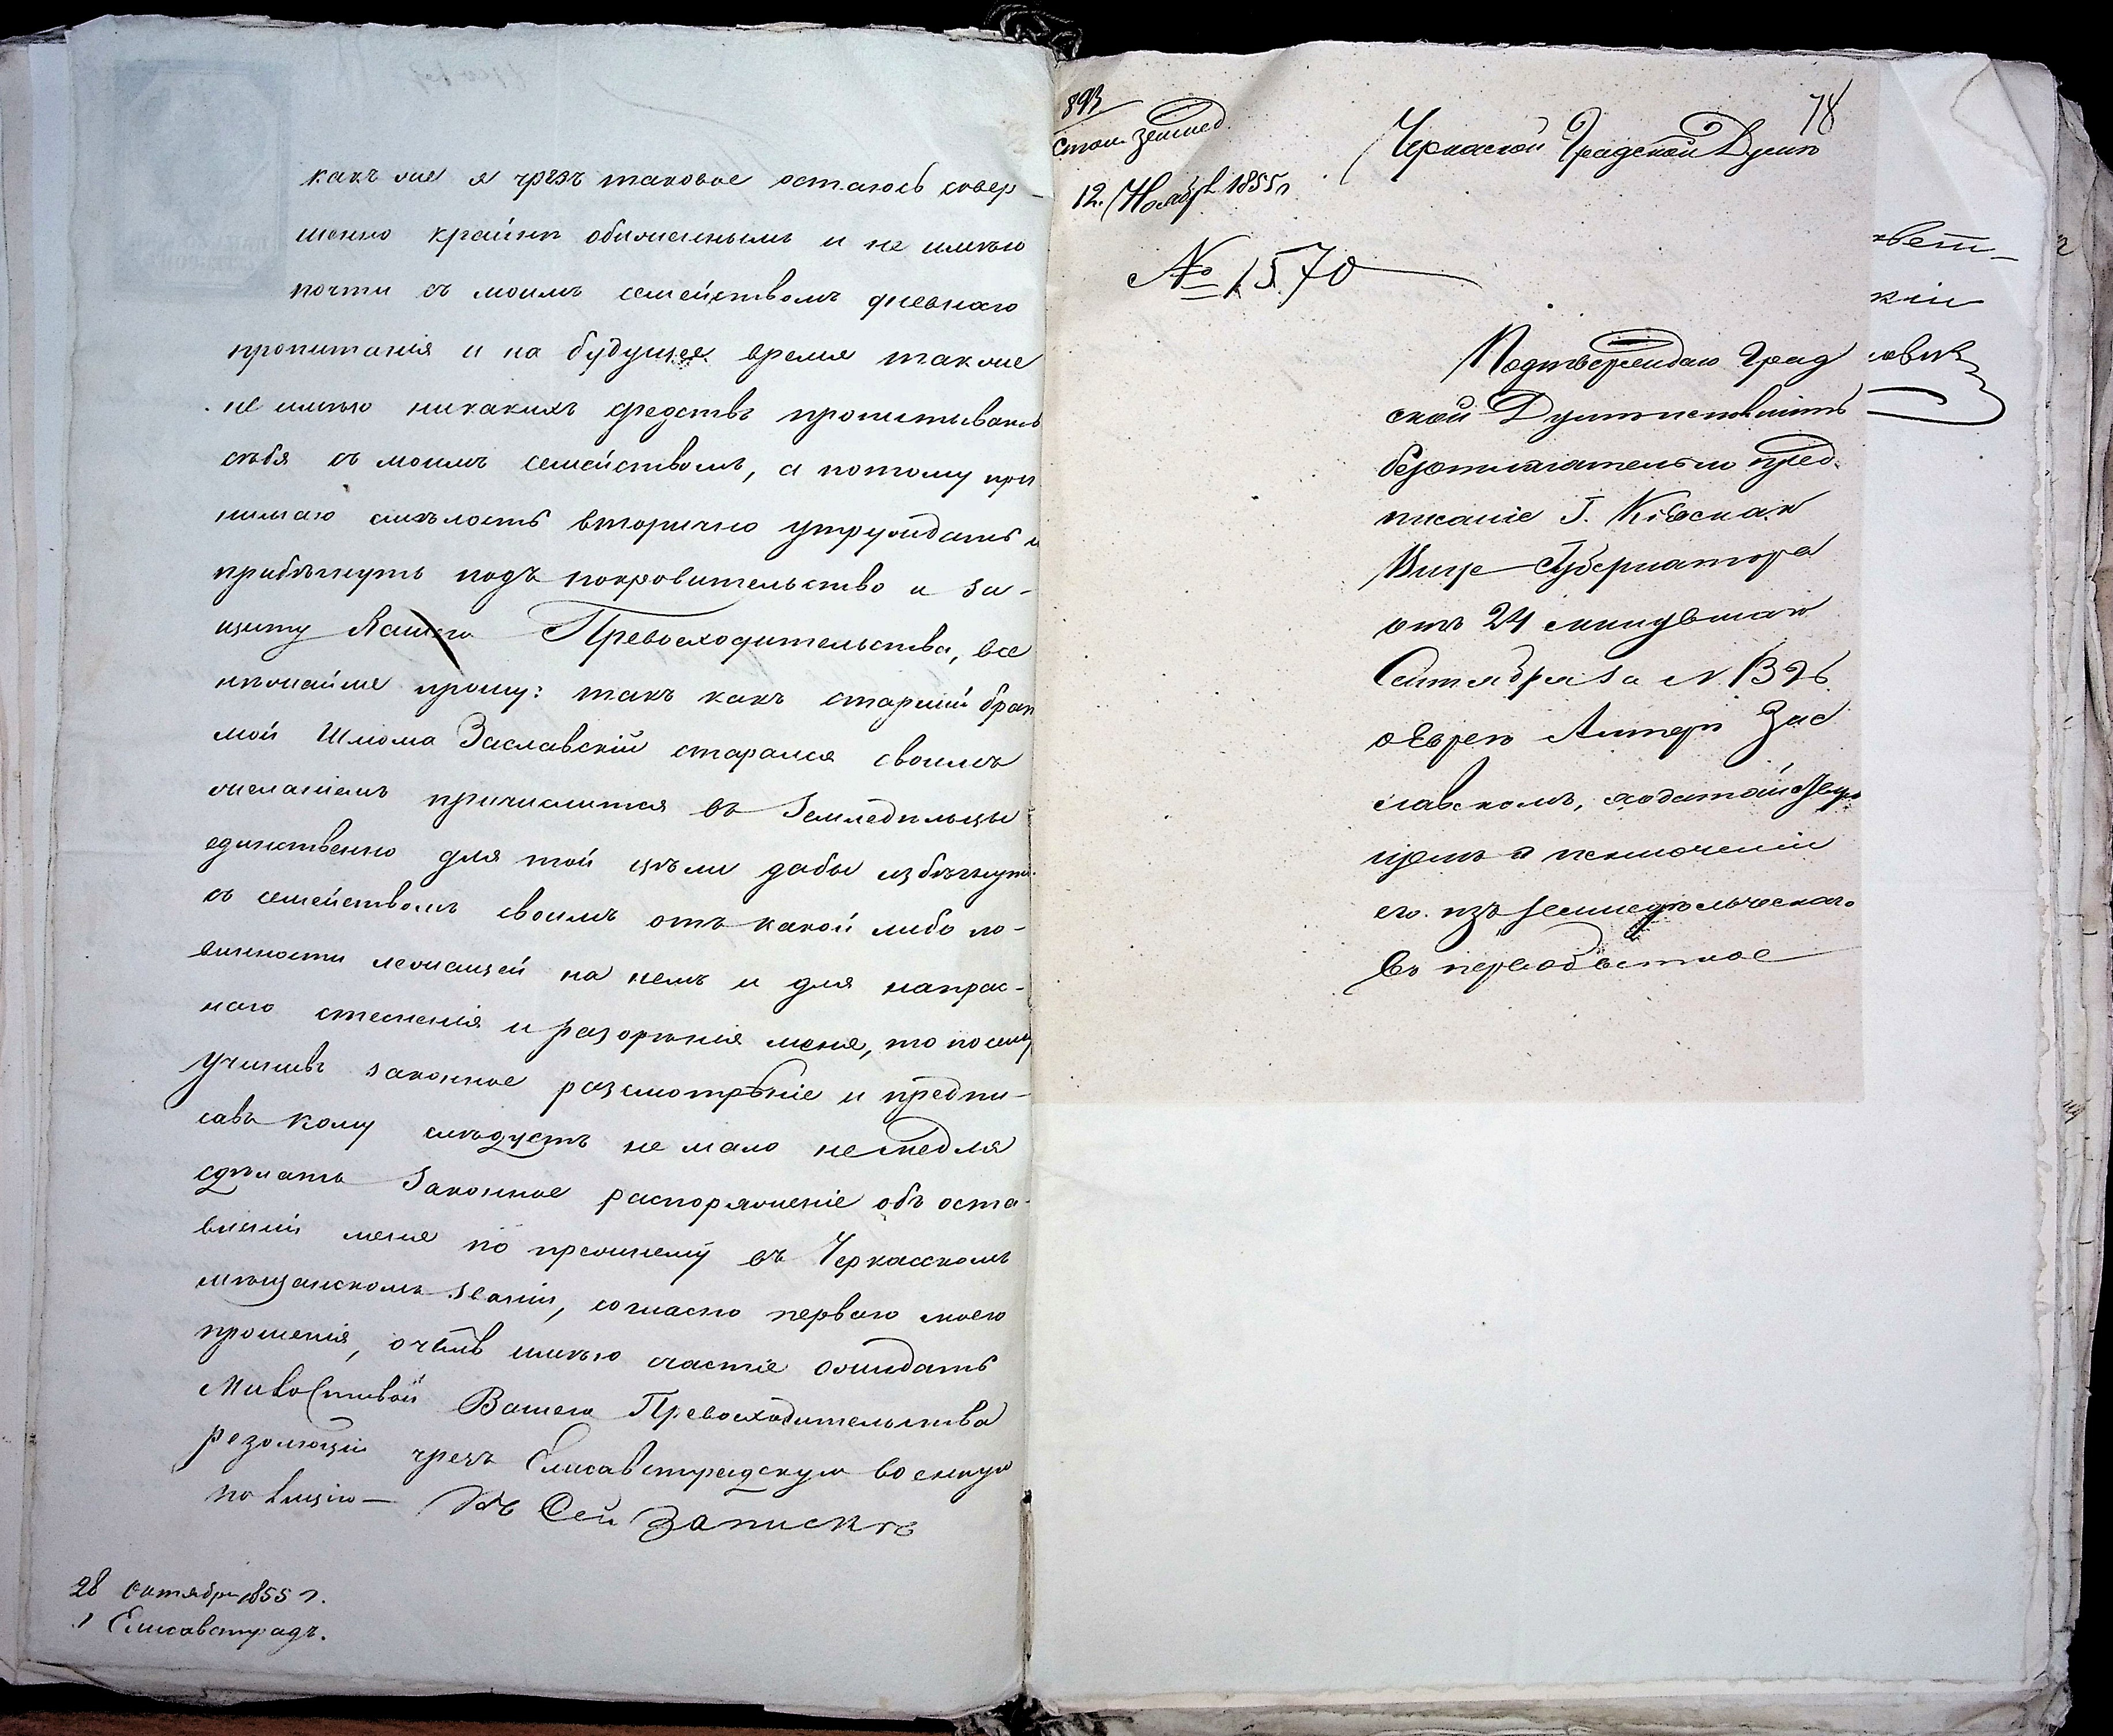 какъ же я чрезъ таковое остаюсь совер-
шенно крайнѣ обиженнымъ и не имѣю
почти съ моимъ семействомъ дневнаго
пропитанія и на будущее время также
не имѣю никакихъ средствъ пропитывать
себя съ моимъ семействомъ, а потому при
нимаю смѣлость вторично утруждать и
прибѣгнуть подъ покровительство и за-
щиту Вашего Превосходительства, все
нижайше прошу: такъ какъ старшій братъ
мой Шлиома Заславскій старался своимъ
желаніемъ причислится въ Земледѣльцы
единственно для той цѣли дабы избѣгнуть
съ семействомъ своимъ отъ какой либо по-
винности лежащей на немъ и для напрас-
наго стесненія и разоренія меня, то посему
учинивъ законное разсмотрѣніе и предпи-
савъ кому слѣдуетъ не мало не медля
сдѣлать Законное распоряженіе объ оста-
вленіи меня по прежнему въ Черкасскомъ
мѣщанскомъ званіи, согласно перваго моего
прошенія, о чемъ имѣю счастіе ожидать
Милостивой Вашего Превосходительства
резолюціи чрезъ Елисаветградскую военную
полицію — Къ Сей Запискѣ
28 октября 1855 г.
г Елисаветградъ.
78
893
Стол. землед.
12. Ноября 1855 г
№ 1570
Черкаской Градской Думѣ
Подтверждаю Град
ской Думѣ исполнить
безотлагательно пред-
писаніе Г. Кіевскаго
Вице Губернатора
отъ 24 минувшаго
Сентября за N 1396
о Евреѣ Алтерѣ Зас
лавскомъ, ходатайствую
щемъ о исключеніи
его изъ земледѣльческаго
въ первобытное
вет-
кій